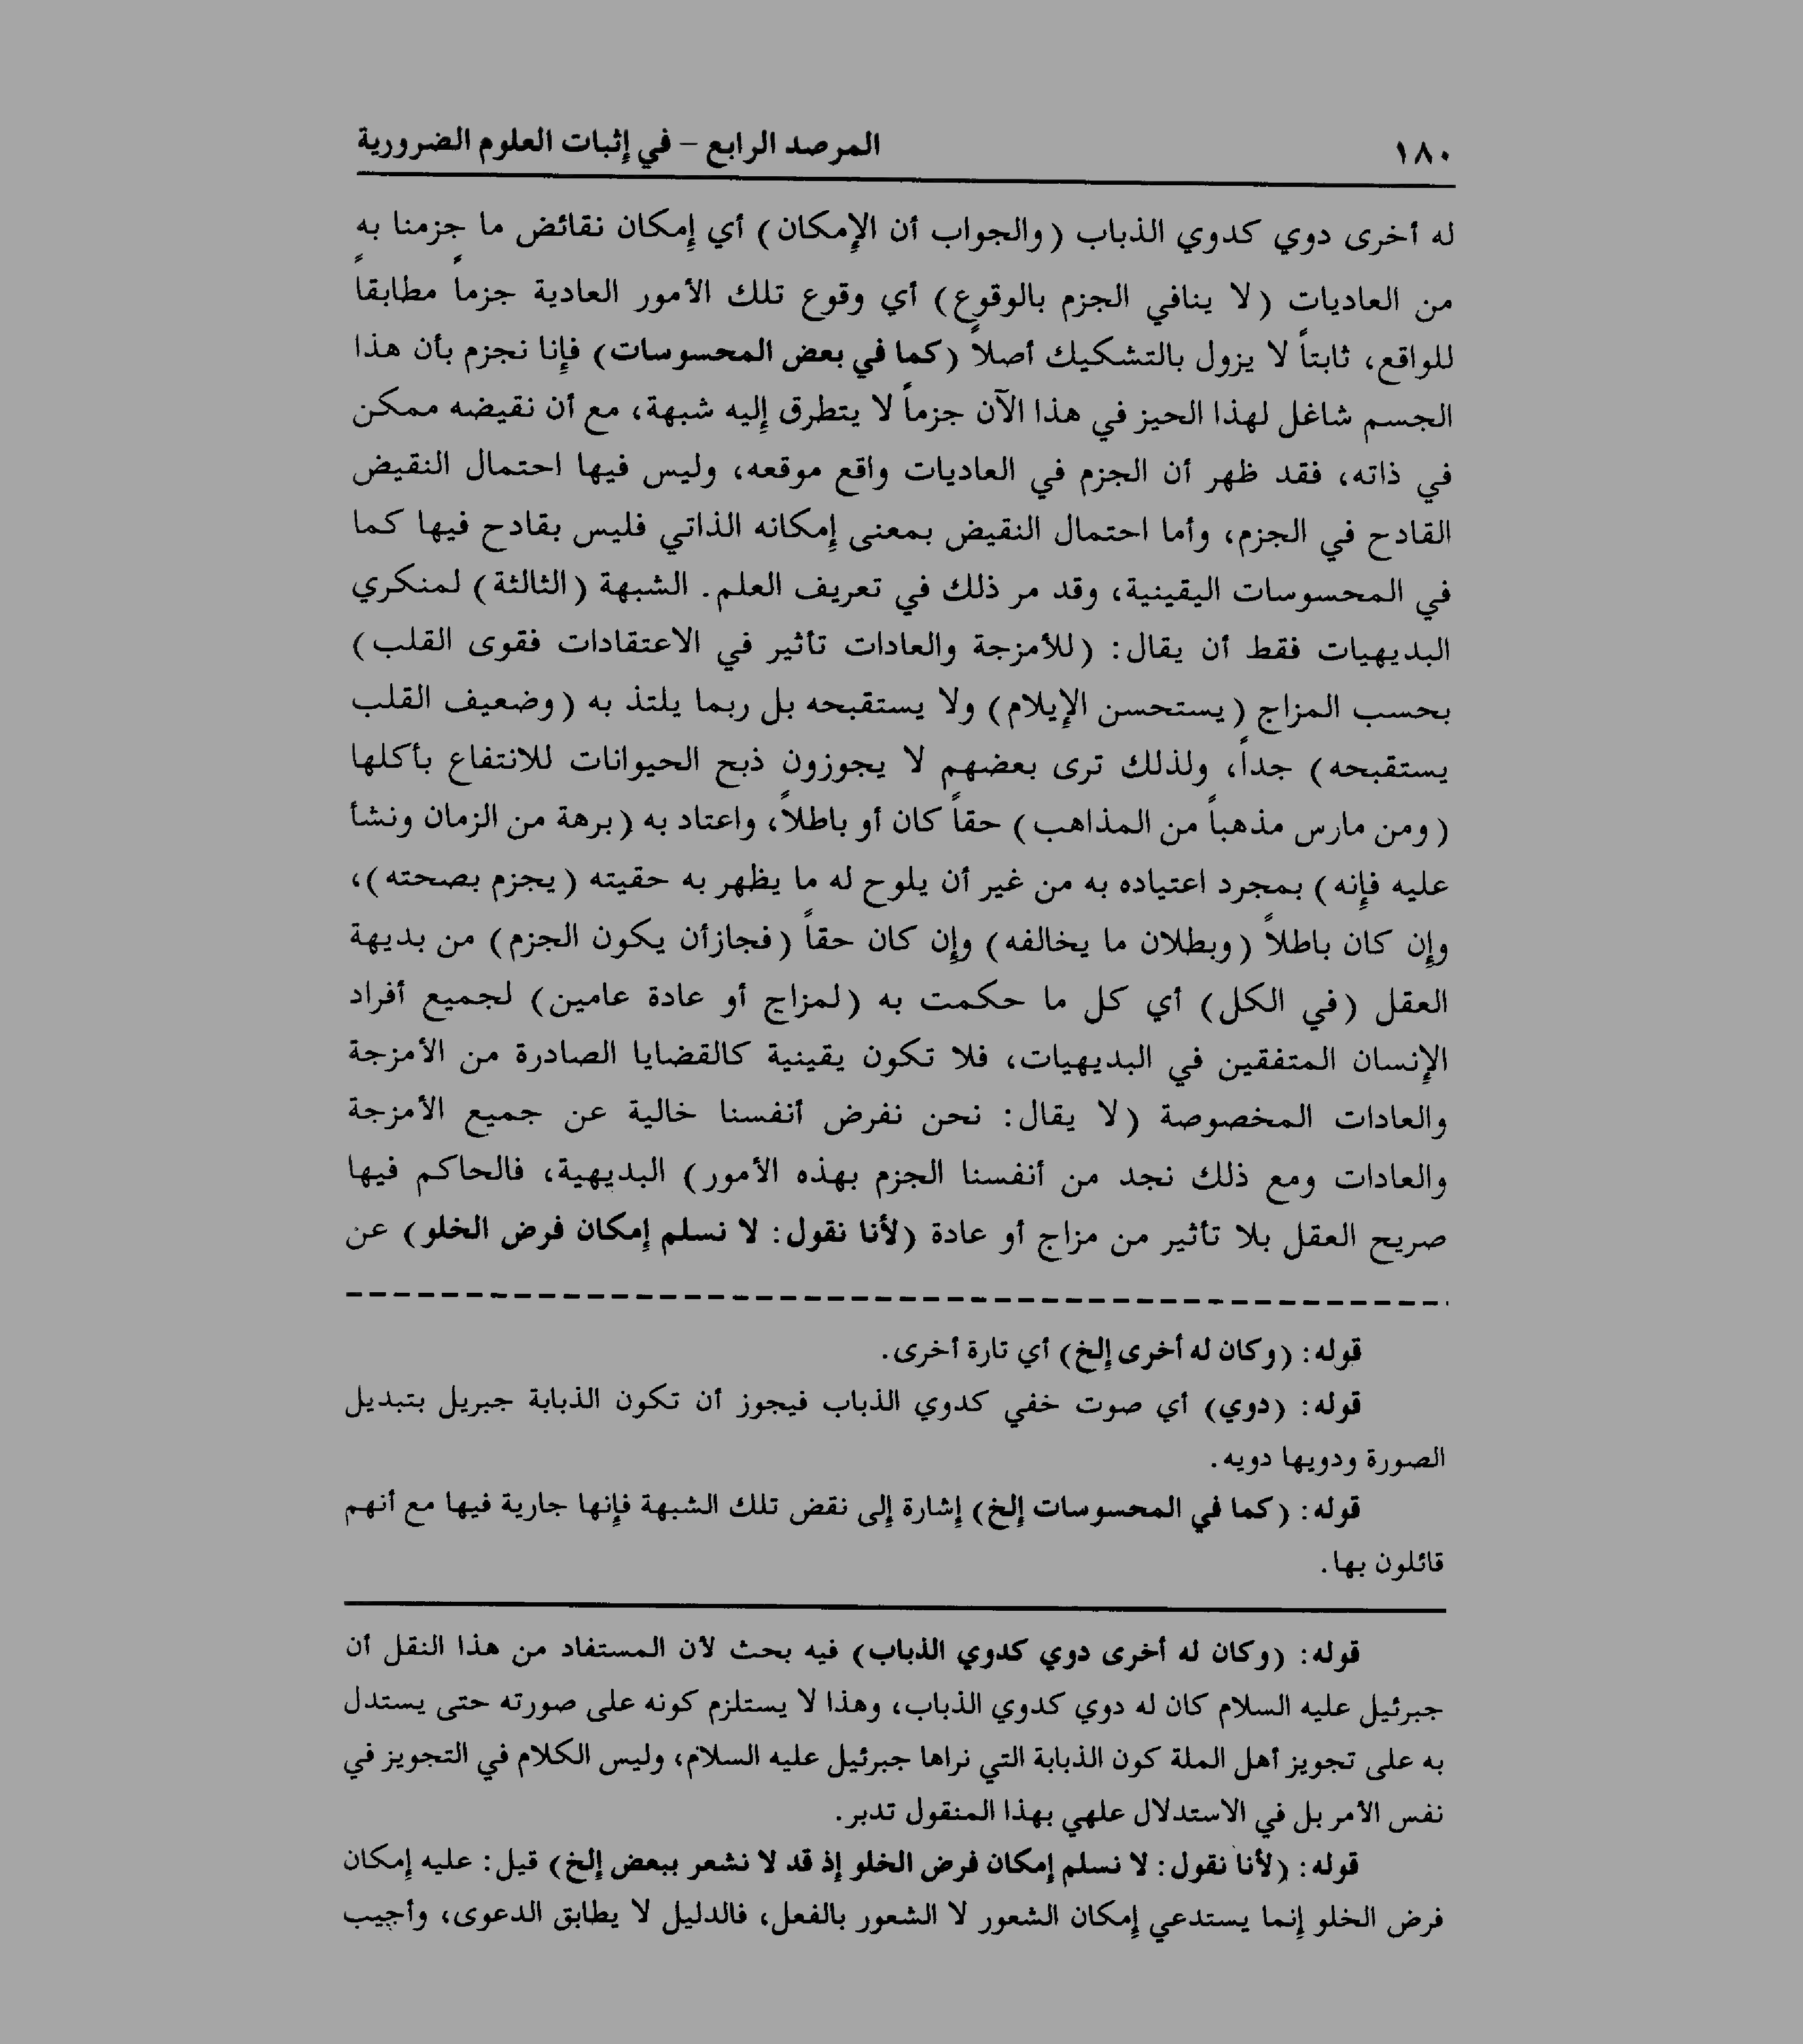 ١٨٠ المرصد الرابع – في إثبات العلوم الضرورية
له أخرى دوي كدوي الذباب (والجواب أن الإمكان) أي إمكان نقائض ما جزمنا به
من العاديات (لا ينافي الجزم بالوقوع) أي وقوع تلك الأمور العادية جزماً مطابقاً
للواقع، ثابتاً لا يزول بالتشكيك أصلاً (كما في بعض المحسوسات) فإنا نجزم بأن هذا
الجسم شاغل لهذا الحيز في هذا الآن جزماً لا يتطرق إليه شبهة، مع أن نقيضه ممكن
في ذاته، فقد ظهر أن الجزم في العاديات واقع موقعه، وليس فيها احتمال النقيض
القادح في الجزم، وأما احتمال النقيض بمعنى إمكانه الذاتي فليس بقادح فيها كما
في المحسوسات اليقينية، وقد مر ذلك في تعريف العلم. الشبهة (الثالثة) لمنكري
البديهيات فقط أن يقال: (للأمزجة والعادات تأثير في الاعتقادات فقوى القلب)
بحسب المزاج (يستحسن الإيلام) ولا يستقبحه بل ربما يلتذ به (وضعيف القلب
يستقبحه) جداً، ولذلك ترى بعضهم لا يجوزون ذبح الحيوانات للانتفاع بأكلها
(ومن مارس مذهباً من المذاهب) حقاً كان أو باطلاً، واعتاد به (برهة من الزمان ونشأ
عليه فإنه) بمجرد اعتياده به من غير أن يلوح له ما يظهر به حقيته (يجزم بصحته)،
وإن كان باطلاً (وبطلان ما يخالفه) وإن كان حقاً (فجازأن يكون الجزم) من بديهة
العقل (في الكل) أي كل ما حكمت به (لمزاج أو عادة عامين) لجميع أفراد
الإنسان المتفقين في البديهيات، فلا تكون يقينية كالقضايا الصادرة من الأمزجة
والعادات المخصوصة (لا يقال: نحن نفرض أنفسنا خالية عن جميع الأمزجة
والعادات ومع ذلك نجد من أنفسنا الجزم بهذه الأمور) البديهية، فالحاكم فيها
صريح العقل بلا تأثير من مزاج أو عادة (لأنا نقول: لا نسلم إمكان فرض الخلو) عن
قوله: (وكان له أخرى إلخ) أي تارة أخرى.
قوله: (دوي) أي صوت خفي كدوي الذباب فيجوز أن تكون الذبابة جبريل بتبديل
الصورة ودويها دويه.
قوله: (كما في المحسوسات إلخ) إشارة إلى نقض تلك الشبهة فإنها جارية فيها مع أنهم
قائلون بها.
قوله: (وكان له أخرى دوي كدوي الذباب) فيه بحث لأن المستفاد من هذا النقل أن
جبرئيل عليه السلام كان له دوي كدوي الذباب، وهذا لا يستلزم كونه على صورته حتى يستدل
به على تجويز أهل الملة كون الذبابة التي نراها جبرئيل عليه السلام، وليس الكلام في التجويز في
نفس الأمر بل في الاستدلال علهي بهذا المنقول تدبر.
قوله: (لأنا نقول: لا نسلم إمكان فرض الخلو إذ قد لا نشعر ببعض إلخ) قيل: عليه إمكان
فرض الخلو إنما يستدعي إمكان الشعور لا الشعور بالفعل، فالدليل لا يطابق الدعوى، وأجيب